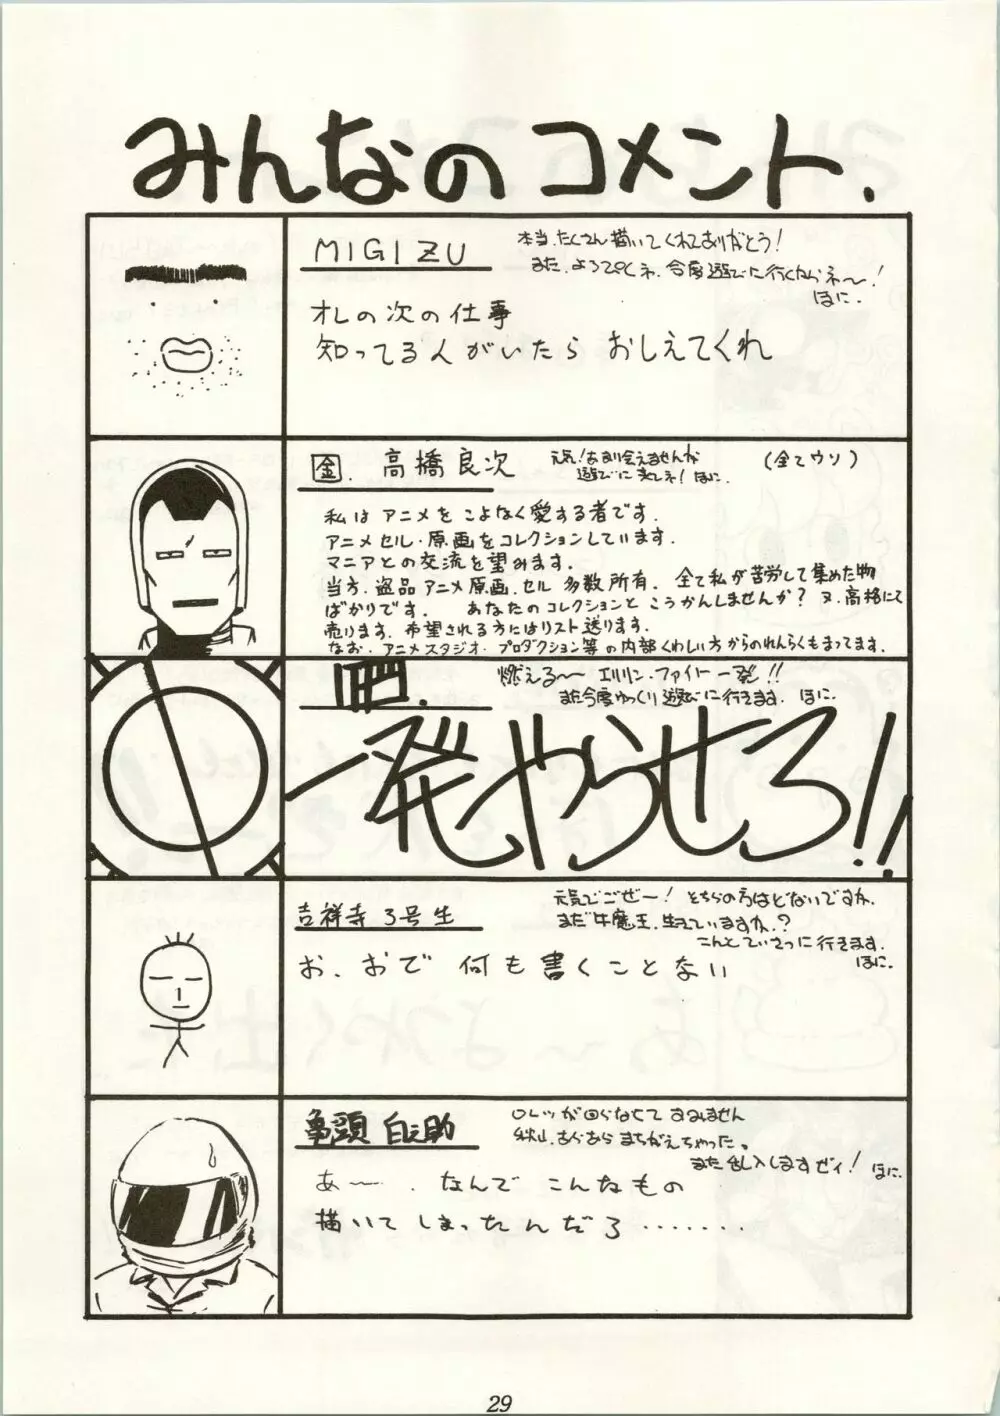 みんなのコメント.
MIGIZU
本当、たくさん描いてくれてありがとう!
また、よろぴくネ、今度遊びに行くからネ〜!
ほに.
オレの次の仕事
知ってる人がいたら おしえてくれ
金. 高橋良次
元気!あまり会えませんが
遊びに来てネ! ほに.
(全てウソ)
私は アニメを こよなく愛する者です.
アニメセル・原画をコレクションしています.
マニアとの交流を望みます.
当方、盗品アニメ原画、セル 多数所有. 全て私が苦労して集めた物
ばかりです. あなたのコレクションと こうかんしませんか? 又、高格にて
売ります. 希望される方にはリスト送ります.
なお、アニメスタジオ・プロダクション等の内部くわしい方からのれんらくもまってます.
肥.
燃える〜 エルリン・ファイバー 一発!!
また今度ゆっくり遊びに行きます. ほに.
一発やらせろ!!
吉祥寺3号生
元気でごぜー! そちらの方はどないですか.
まだ牛魔王、生きていますか?
こんどていさつに行きます.
ほに.
お、おで 何も書くことない
亀頭 白之助
ロレツが回らなくて すみません
まちがえちゃった。
また乱入しますゼイ! ほに.
あ〜. なんで こんなもの
描いて しまったんだろ・・・・・・・
29